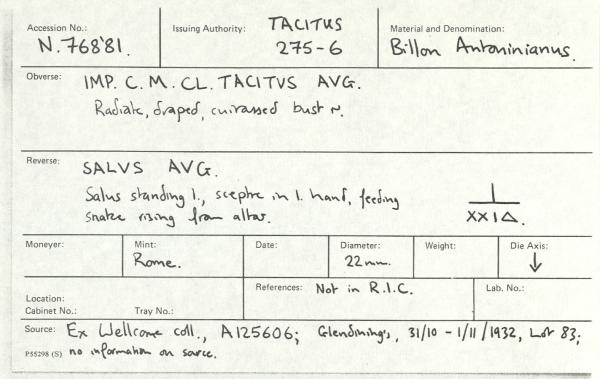 Accession No.: Issuing Authority: TACITUS Material and Denomination:
N.768'81. 275-6 Billon Antoninianus.
Obverse: IMP. C. M. CL. TACITVS AVG.
Radiate, draped, cuirassed bust r.
Reverse: SALVS AVG.
Salus standing l., sceptre in l. hand, feeding
snake rising from altar. XXIΔ.
Moneyer: Mint: Date: Diameter: Weight: Die Axis:
Rome. 22mm. ↓
References: Not in R.I.C. Lab. No.:
Location:
Cabinet No.: Tray No.:
Source: Ex Wellcome coll., A125606; Glendining's, 31/10 - 1/11/1932, Lot 83;
P55298 (S) no information on source.